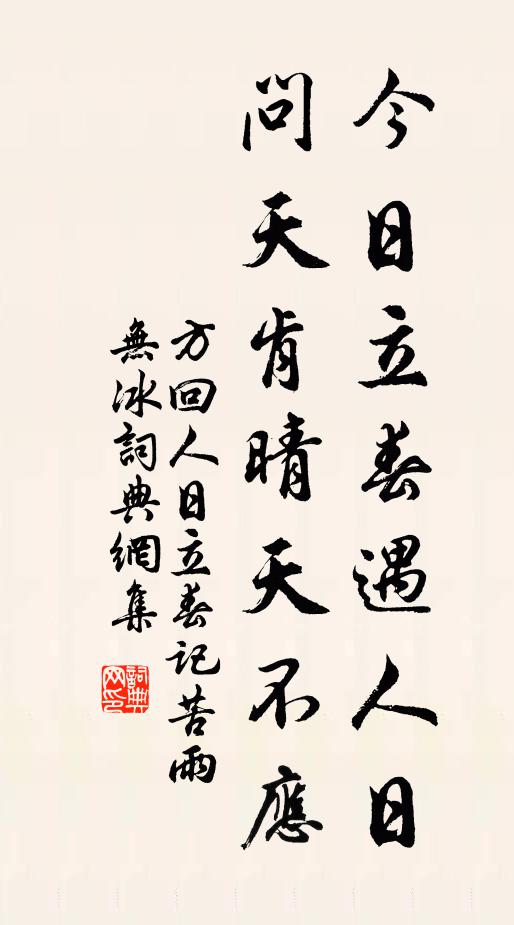 今日立春遇人日
問天肯晴天不應
方回人日立春記苦雨
無冰詞典網集
詞典
网印